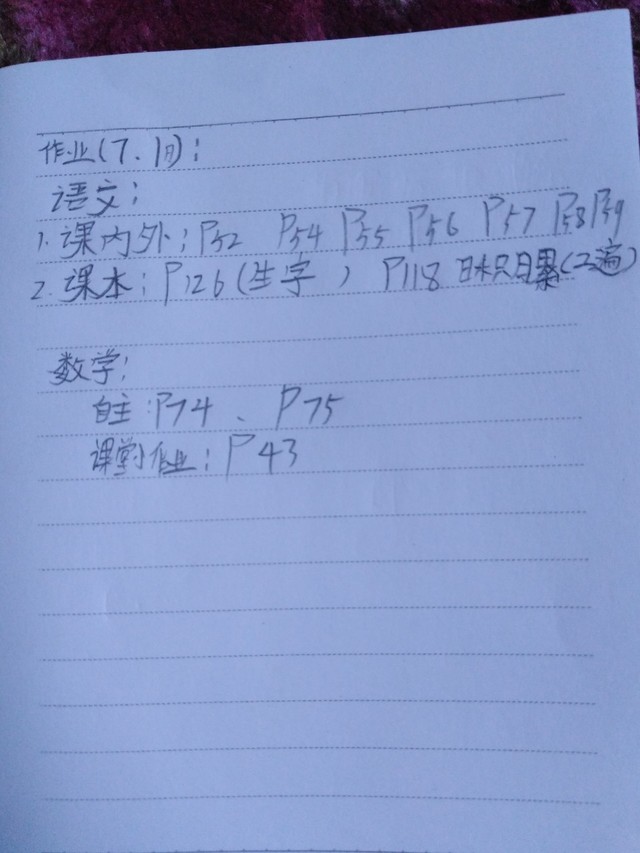 作业(7、1日):
语文:
1.课内外:P52 P54 P55 P56 P57 P58 P59
2.课本:P126(生字 ) P118 日积日累(二遍)
数学:
自主:P74、P75
课堂作业:P43